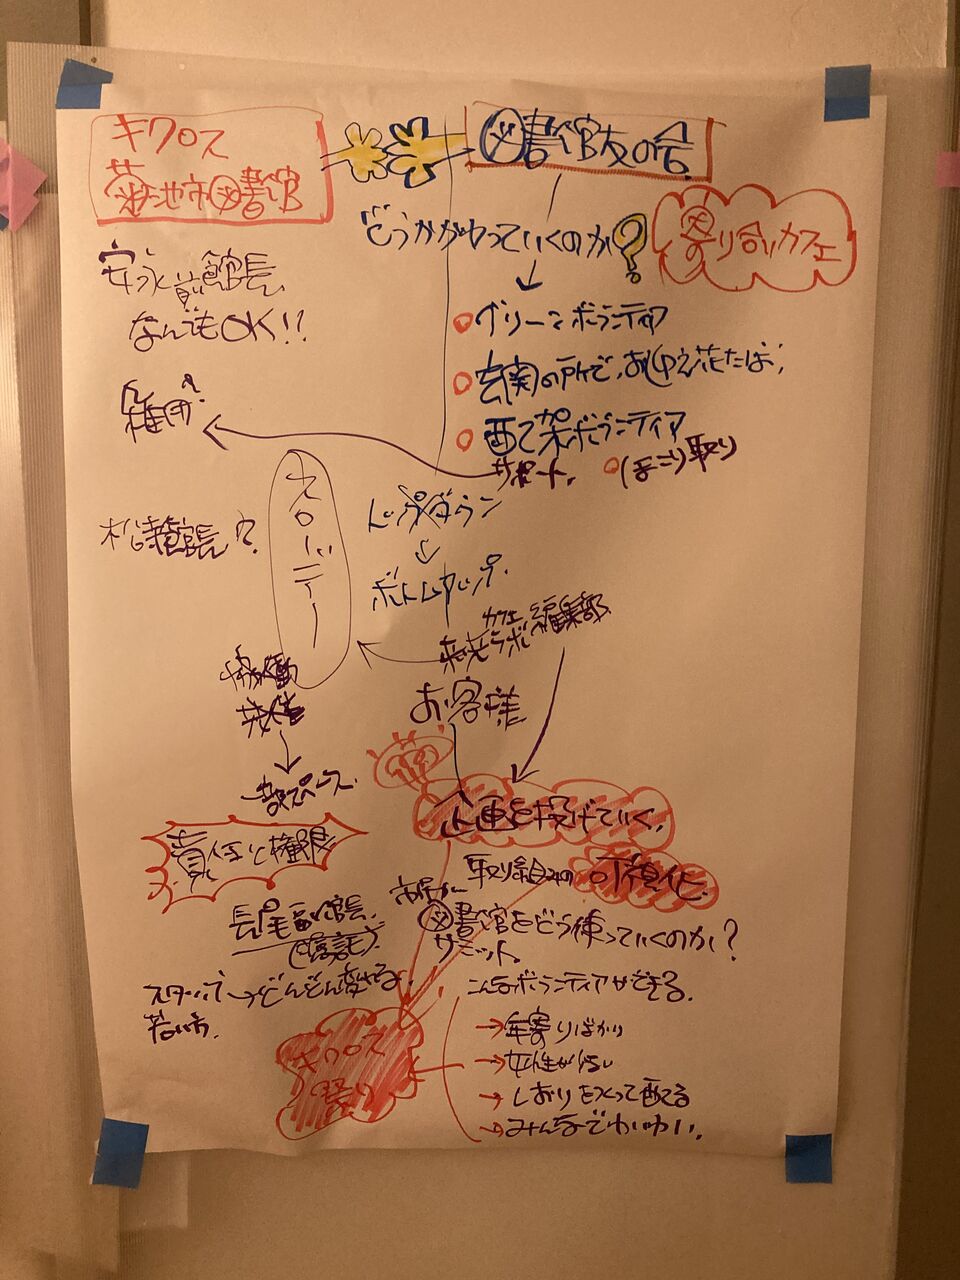 キクロス
菊池市図書館
図書館友の会
どうかかわっていくのか?
寄り合いカフェ
安永前館長
なんでもOK!!
グリーンボランティア
玄関の所で、お迎え花たば、
配架ボランティア
サポート。
ほこり取り
雑用?
館長?
スローバディー
トップダウン
ボトムアップ。
カフェ
未来ラボ 編集部
お客様
協働
スペース
企画を投げていく。
責任と権限
取り組みの可視化
長尾副館長
(嘱託)
図書館をどう使っていくのか?
サミット
スタッフ→どんどん変わる。
若い方。
こんなボランティアができる。
→年寄りばかり
→女性が多い
→しおりをつくって配てる
→みんなでわいわい。
キクロス
祭り